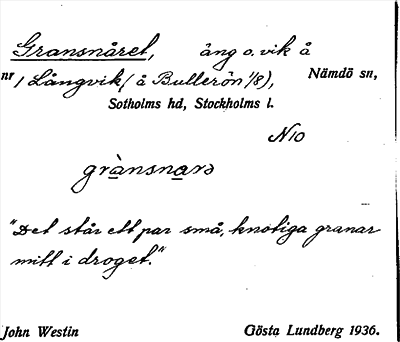 Gransnåret, äng o. vik å
nr 1 Långvik (å Bullerön 1/8), Nämdö sn,
Sotholms hd, Stockholms l.
N10
grànsnarə
"Det står ett par små, knotiga granar
mitt i droget."
John Westin Gösta Lundberg 1936.